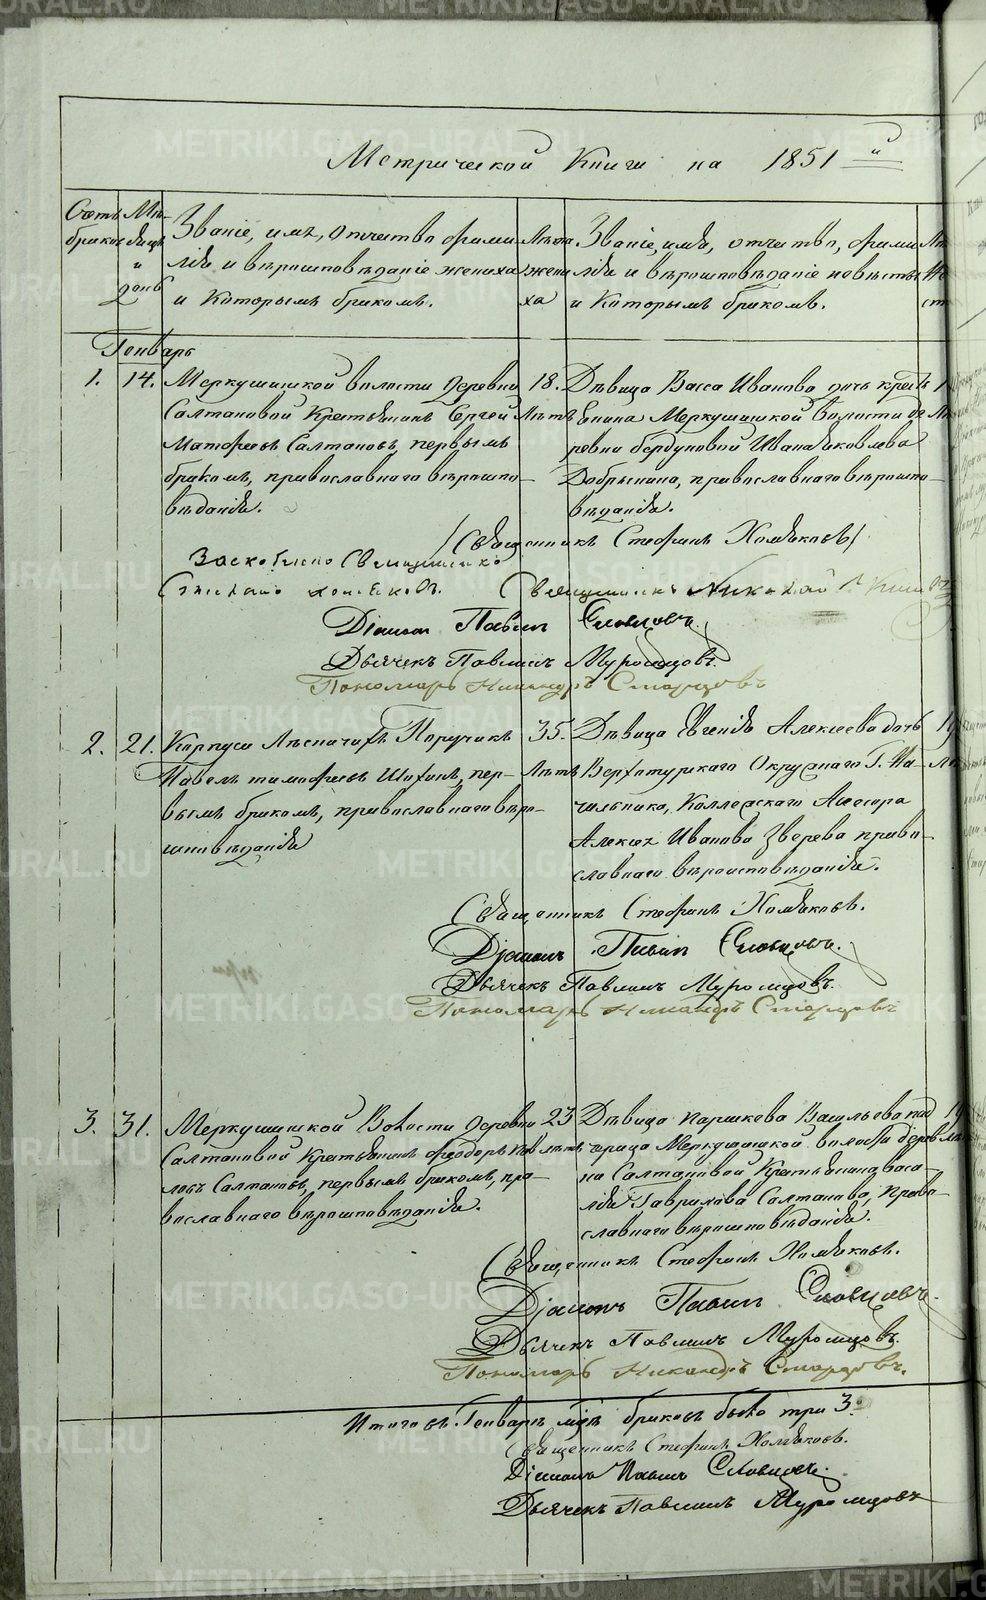 Метрической Книги на 1851 й
Счетъ браковъ
Мѣсяцъ и день
Званіе, имя, отчество, фами-
лія и вѣроисповѣданіе жениха
и которымъ бракомъ.
Лѣта
жени
ха
Званіе, имя, отчество, фами
лія и вѣроисповѣданіе невѣсты
и которымъ бракомъ.
Генварь
1. 14. Меркушинской волости деревни
Салтановой Крестьянинъ Сергей
Матфѣевъ Салтановъ, первымъ
бракомъ, православнаго вѣроиспо-
вѣданія.
18.
Лѣтъ
Дѣвица Васса Иванова дочь кресть
янина Меркушинской волости де
ревни Бердуновой Ивана Яковлева
Добрынина, православнаго вѣроиспо-
вѣданія.
/Священникъ Стефанъ Хомяковъ/
Священника
Священникъ Николай
Діаконъ Павелъ Словцовъ.
Дьячекъ Павлинъ Муромцовъ.
Пономарь Никандръ Старцовъ
2. 21. Корпуса Лѣсничихъ Поручикъ
Павелъ Тимофѣевъ Шохинъ, пер-
вымъ бракомъ, православнаго вѣро-
исповѣданія
35.
Лѣтъ
Дѣвица Евгенія Алексѣева дочь
Верхотурскаго Окружнаго Г. На-
чальника, Коллежскаго Асесора
Алексѣя Иванова Звѣрева право-
славнаго вѣроисповѣданія.
Священникъ Стефанъ Хомяковъ.
Діаконъ Павелъ Словцовъ.
Дьячекъ Павлинъ Муромцовъ.
Пономарь Никандръ Старцовъ
3. 31. Меркушинской Волости деревни
Салтановой Крестьянинъ Феодоръ
Салтановъ, первымъ бракомъ, пра-
вославнаго вѣроисповѣданія.
23
лѣтъ
Дѣвица Параскева Васильева пад
черица Меркушинской волости деревни
Салтановой Крестьянина Васи-
лія Гаврилова Салтанова, Право-
славнаго вѣроисповѣданія.
Священникъ Стефанъ Хомяковъ.
Діаконъ Павелъ Словцовъ.
Дьячекъ Павлинъ Муромцовъ.
Пономарь Никандръ Старцовъ.
Итого въ Генварѣ мцѣ браковъ было три 3.
Священникъ Стефанъ Хомяковъ.
Діаконъ Павелъ Словцовъ.
Дьячекъ Павлинъ Муромцовъ
METRIKI.GASO-URAL.RU